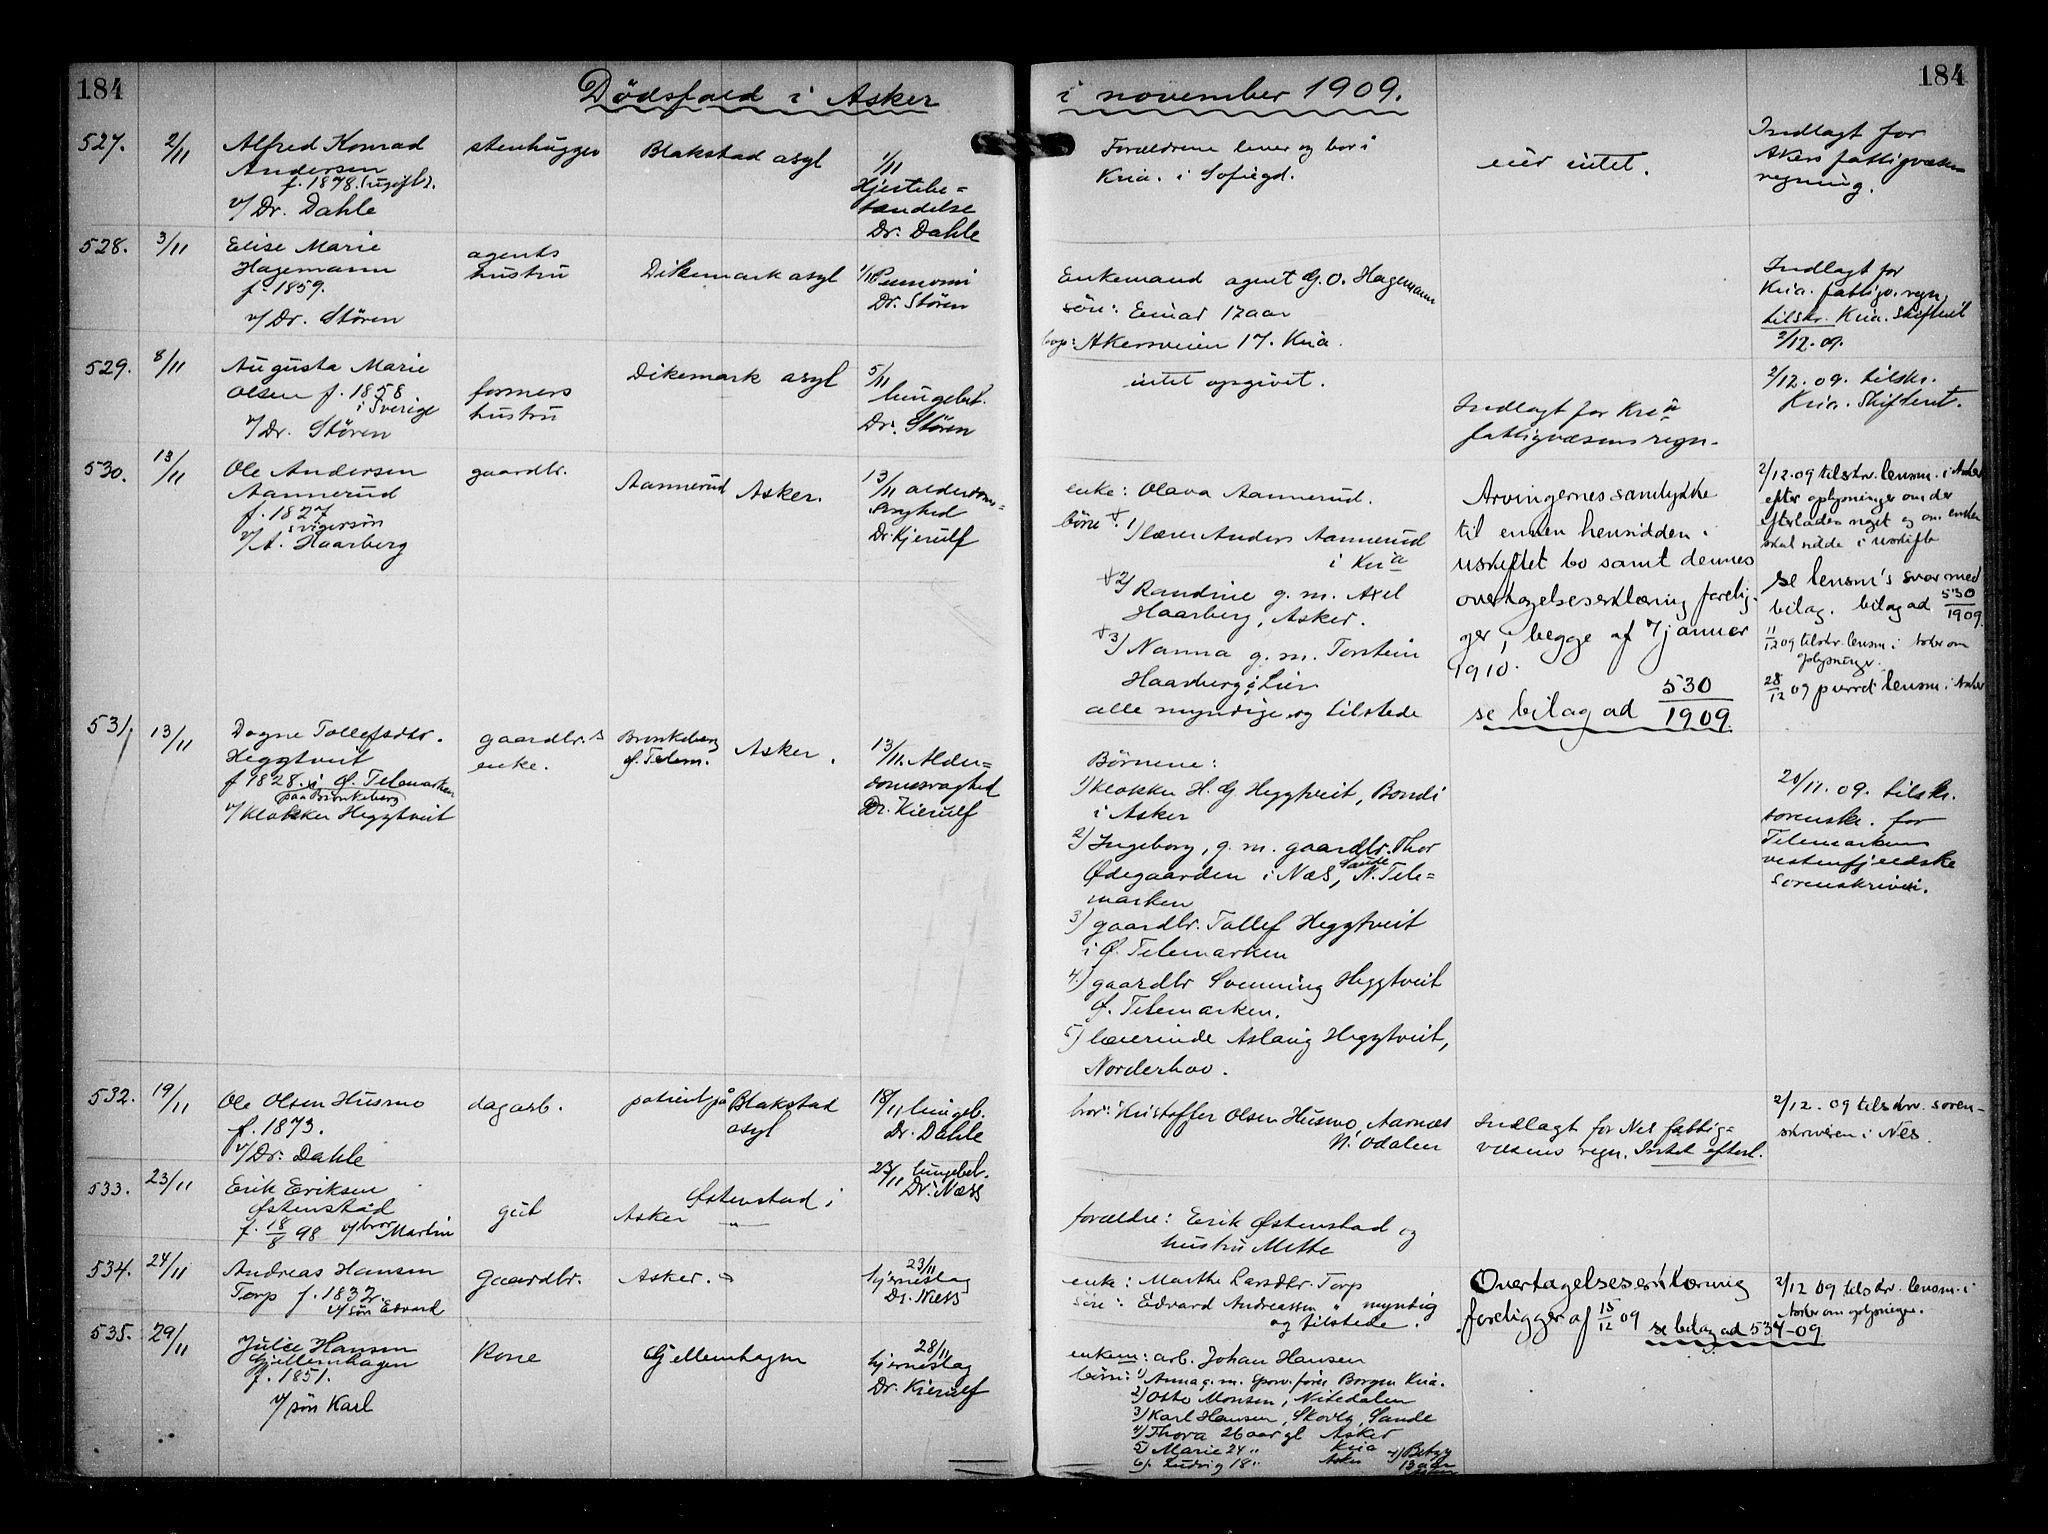 184
Dödsfald i Asker
i november 1909.
184
527.
2/11
Alfred Konrad
Andersen
f. 1878. (ugift).
v/ Dr. Dahle
stenhugger
Blakstad asyl
1/11
Hjertebe=
tændelse
Dr. Dahle
Forældrene lever og bor i
Kria. i Sofiegd.
eier intet.
Indlagt for
Akers fattigvæsens
regning.
528.
3/11
Elise Marie
Hagemann
f. 1859.
v/ Dr. Stören
agents
hustru
Dikemark asyl
1/11 Pneumoni
Dr. Stören
Enkemand agent G. O. Hagemann
sön: Einar 17 aar
bop: Akersveien 17. Kria.
Indlagt for
Kria. fattigv. regn.
tilskr. Kria. Skifteret
2/12.09.
529.
8/11
Augusta Marie
Olsen f. 1858
i Sverige
v/ Dr. Stören
formers
hustru
Dikemark asyl
5/11
lungebet.
Dr. Stören
intet opgivet.
Indlagt for Kria
fattigvæsens regn.
2/12.09. tilskr.
Kria. Skifteret.
530.
13/11
Ole Andersen
Aannerud
f. 1827
svigersön
v/ A. Haarberg
gaardbr.
Aannerud Asker.
13/11 alderdoms=
svaghed
Dr. Kjerulf
enke: Olava Aannerud.
börn: 1) lærer Anders Aannerud
i Kria
2) Randine g. m. Axel
Haarberg, Asker.
3) Nanna g. m. Torstein
Haarberg i Lier
alle myndige og tilstede
Arvingernes samtykke
til enken hensidden i
uskiftet bo samt dennes
overtagelseserklæring forelig-
ger, begge af 7 januar
1910.
se bilag ad 530/1909
2/12.09 tilskr. lensm. i Asker
efter oplysninger om der
efterlades noget og om enken
skal sidde i uskifte
se lensm's svar med
bilag. bilag ad 530/1909.
11/12 09 tilskr. lensm. i Asker om
oplysninger.
28/12 09 purret lensm. i Asker
531.
13/11
Dagne Tollefsdtr.
Heggtveit
f 1828. i Ö. Telemarken
paa Brunkeberg
v/ Klokker Heggtveit
gaardbr.s
enke.
Brunkeberg
Ö. Telem.
Asker.
13/11. Alder=
domssvaghed
Dr. Kierulf
Börnene:
1) Klokker H. G Heggtveit, Bondi
i Asker
2) Ingeborg, g. m. gaardbr. Thor
Ödegaarden i Næs, Saude N. Tele=
marken
3) gaardbr. Tollef Heggtveit
i Ö. Telemarken
4) gaardbr Svenning Heggtveit
Ö. Telemarken.
5) lærerinde Aslaug Heggtveit,
Norderhov.
20/11.09. tilskr.
sorenskr. for
Telemarkens
vestenfjeldske
sorenskriveri.
532.
19/11
Ole Olsen Husmo
f. 1873.
v/ Dr. Dahle
dagarb.
patient på Blakstad
asyl
18/11 lungeb.
Dr. Dahle
bror: Kristoffer Olsen Husmo, Aarnæs
N. Odalen
Indlagt for Nes fattig=
væsens regn. Intet efterl.
2/12. 09 tilskr. soren-
skriveren i Nes.
533.
23/11
Erik Eriksen
Östenstad
f. 18/8 98 v/ bror Martin
gut
Östenstad i
Asker "
23/11 lungebet.
Dr. Næss
forældre: Erik Östenstad og
hustru Mette
534.
24/11
Andreas Hansen
Torp f. 1832.
v/ sön Edvard
Gaardbr.
Asker.
23/11
hjerneslag
Dr. Næss
enke: Marthe Larsdtr. Torp
sön: Edvard Andreassen " myndig
og tilstede.
Overtagelseserklæring
foreligger af 15/12 09 se bilag ad 534-09
2/12 09 tilskr. lensm. i
Asker om oplysninger.
535.
29/11
Julie Hansen
Gjellumhagen
f. 1851.
v/ sön Karl
Kone
Gjellumhagen
28/11
hjerneslag
Dr. Kierulf
enkem: arb. Johan Hansen
börn: 1) Anna g. m. sporv. förer Borgen Kria.
2) Otto Monsen, Nitedalen
3) Karl Hansen, Skovly, Sande
4) Thora 26 aar gl Asker
5) Marie 24 " Kria
6) Ludvig 18 " Asker
7) Betzy
13 aar